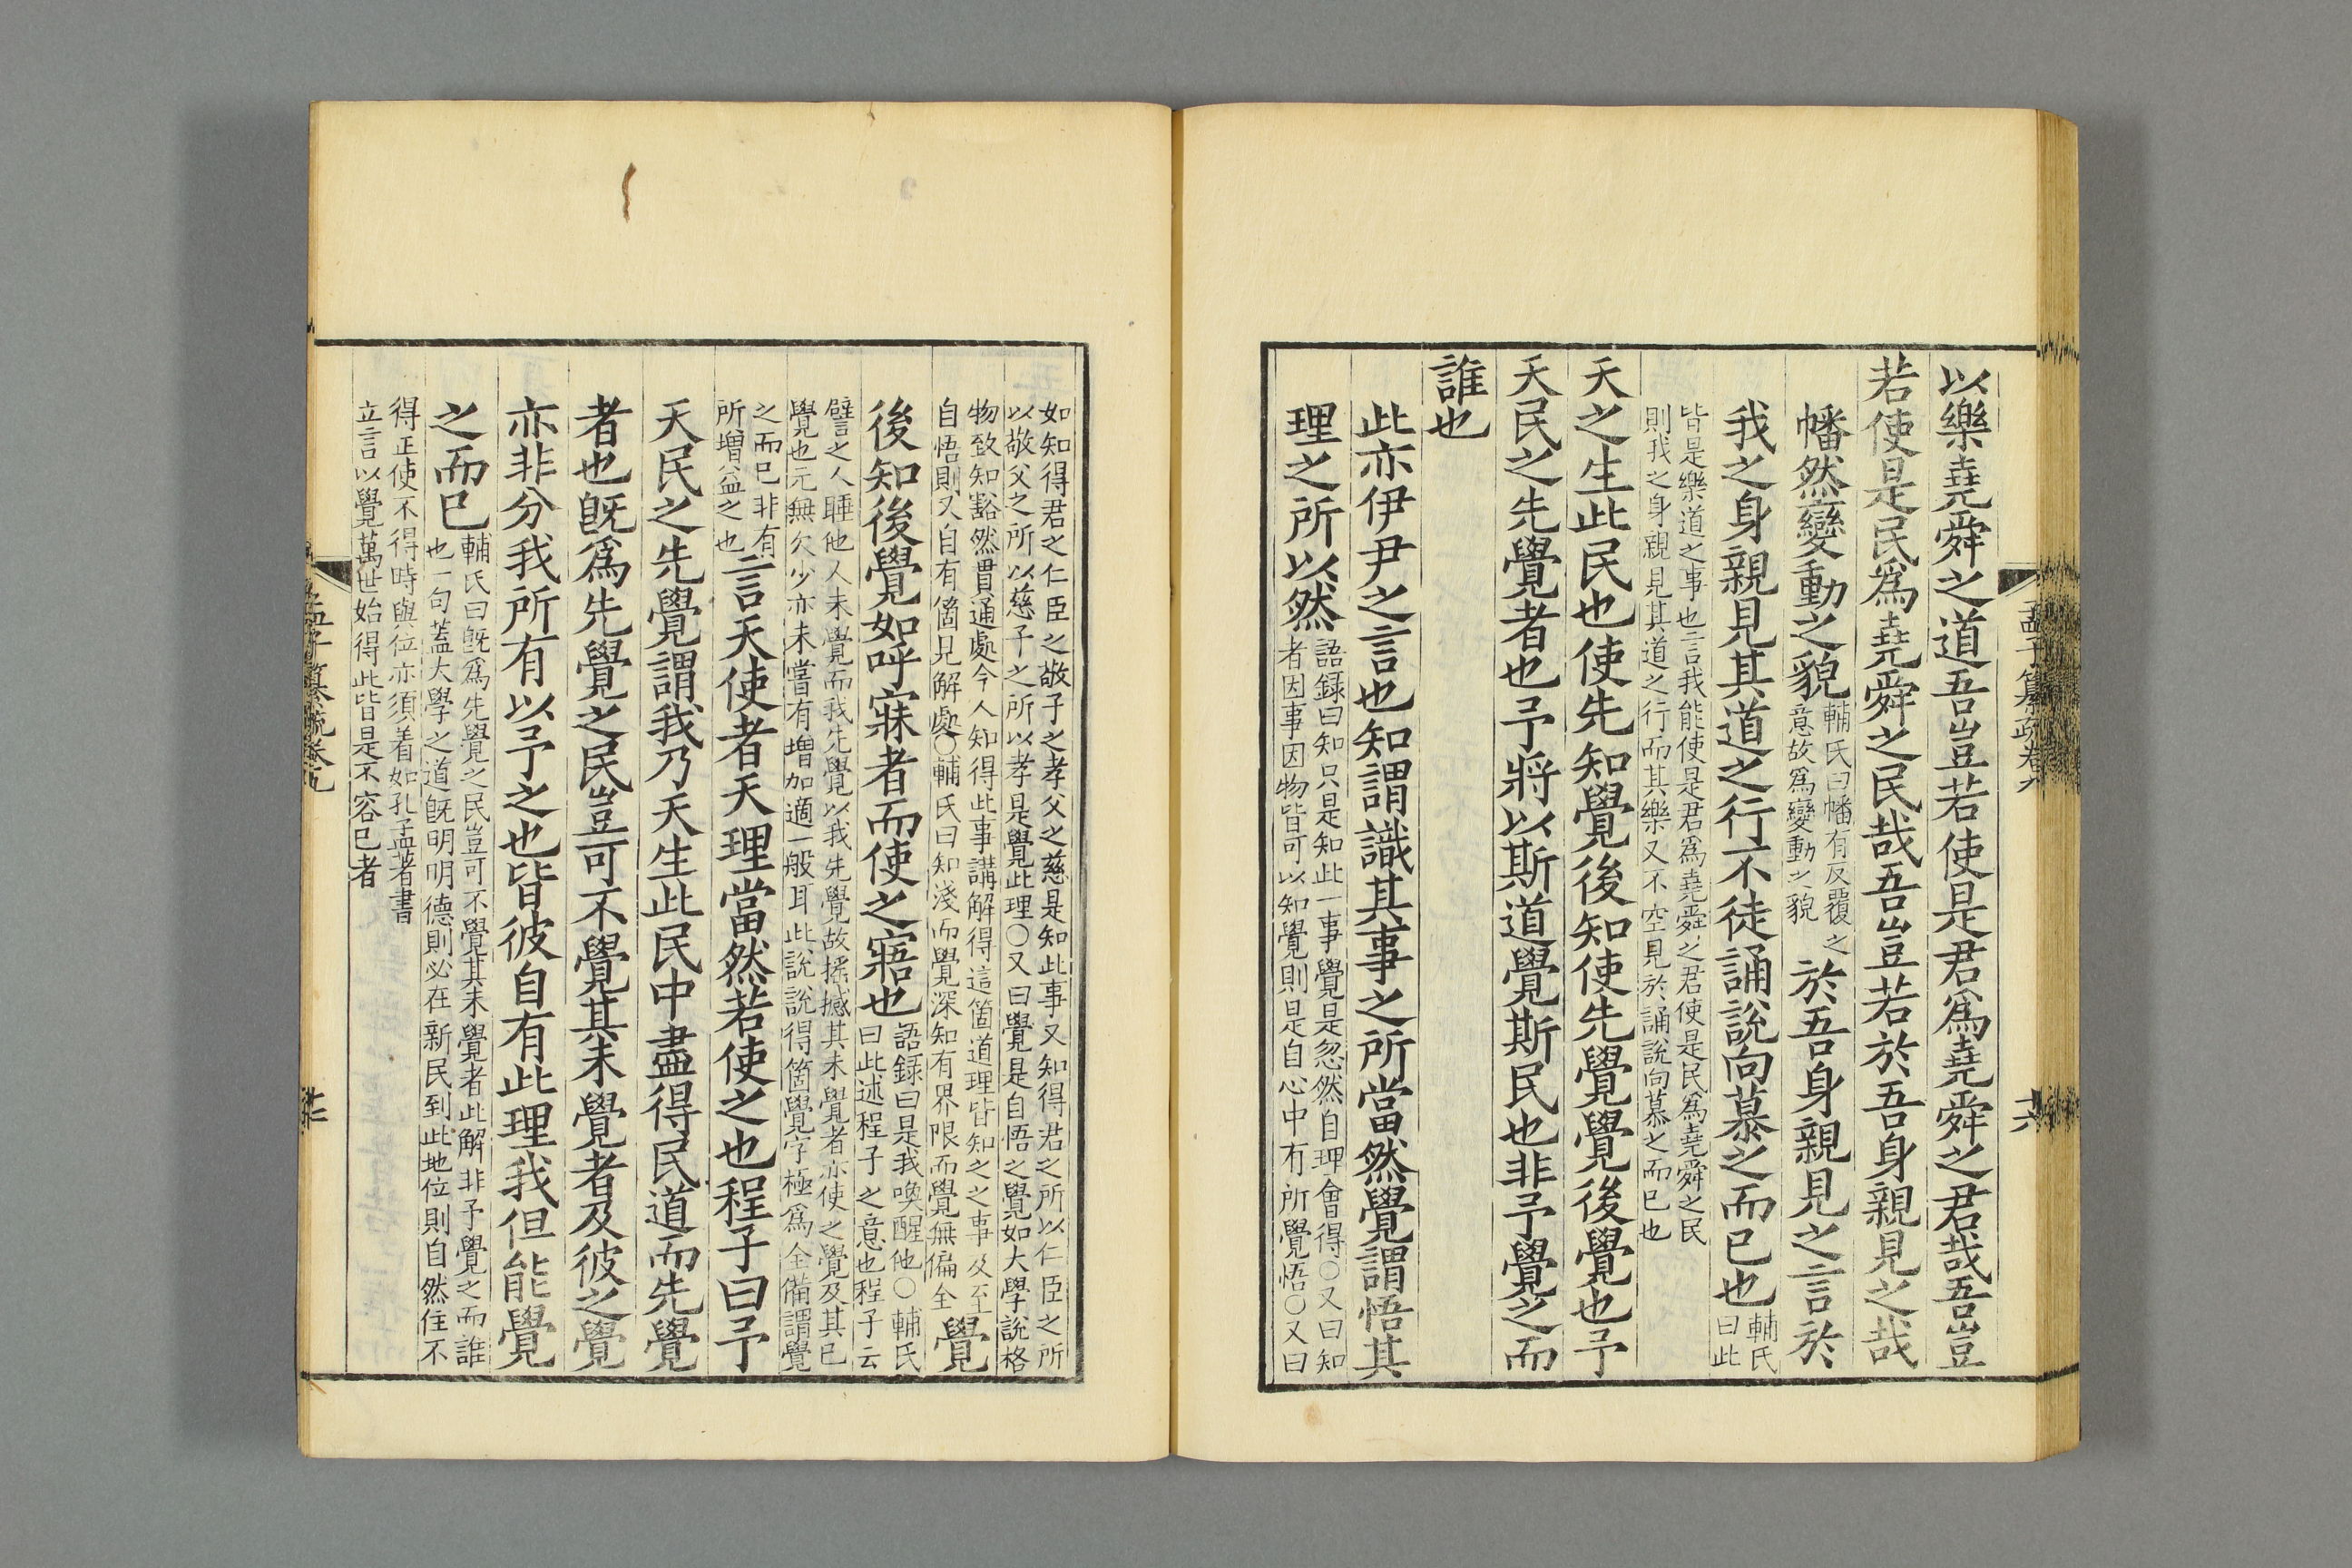 以樂堯舜之道吾豈若使是君爲堯舜之君哉吾豈
若使是民爲堯舜之民哉吾豈若於吾身親見之哉
幡然變動之貌
輔氏曰幡有反覆之
意故爲變動之貌
於吾身親見之言於
我之身親見其道之行不徒誦說向慕之而已也
輔氏
曰此
皆是樂道之事也言我能使是君爲堯舜之君使是民爲堯舜之民
則我之身親見其道之行而其樂又不空見於誦說向慕之而已也
天之生此民也使先知覺後知使先覺覺後覺也予
天民之先覺者也予將以斯道覺斯民也非予覺之而
誰也
此亦伊尹之言也知謂識其事之所當然覺謂悟其
理之所以然
語録曰知只是知此一事覺是忽然自理會得○又曰知
者因事因物皆可以知覺則是自心中有所覺悟○又曰
孟子纂疏卷九
十六
如知得君之仁臣之敬子之孝父之慈是知此事又知得君之所以仁臣之所
以敬父之所以慈子之所以孝是覺此理○又曰覺是自悟之覺如大學說格
物致知豁然貫通處今人知得此事講解得這箇道理皆知之之事及至
自悟則又自有箇見解處○輔氏曰知淺而覺深知有界限而覺無偏全
覺
後知後覺如呼寐者而使之寤也
語録曰是我喚醒他○輔氏
曰此述程子之意也程子云
譬之人睡他人未覺而我先覺以我先覺故搖撼其未覺者亦使之覺及其已
覺也元無欠少亦未嘗有増加適一般耳此說說得箇覺字極爲全備謂覺
之而已非有
所增益之也
言天使者天理當然若使之也程子曰予
天民之先覺謂我乃天生此民中盡得民道而先覺
者也旣爲先覺之民豈可不覺其未覺者及彼之覺
亦非分我所有以予之也皆彼自有此理我但能覺
之而已
輔氏曰旣爲先覺之民豈可不覺其未覺者此解非予覺之而誰
也一句蓋大學之道旣明明德則必在新民到此地位則自然住不
得正使不得時與位亦須着如孔孟著書
立言以覺萬世始得此皆是不容已者
孟子纂疏卷九